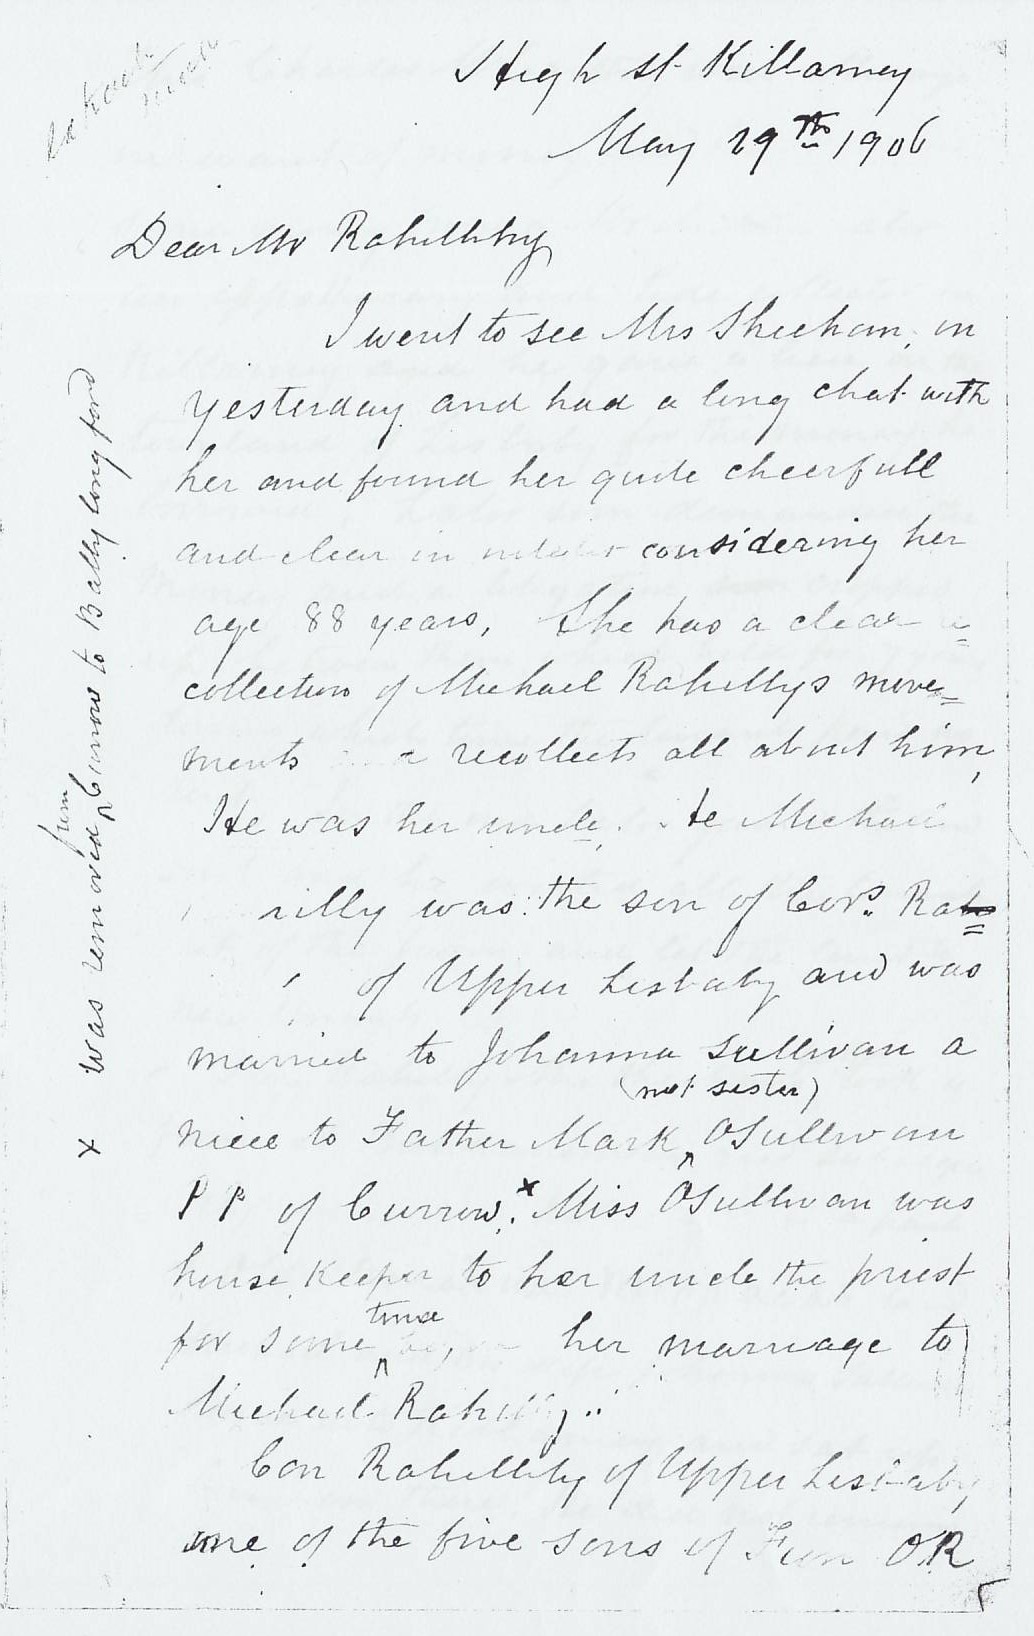 High St Killarney
May 29th 1906
Dear Mr Rahilly
I went to see Mrs Sheehan, on
yesterday and had a long chat with
her and found her quite cheerfull
and clear in considering her
age 88 years, She has a clear
collection of Michael Rahillys move=
ments recollects all about him,
He was her uncle. Michael
was the son of Cors. Rah
of Upper Lisbaby and was
married to Johanna Sullivan a
(not sister)
niece to Father Mark OSullivan
P P of Currow.x Miss OSullivan was
house Keeper to her uncle the priest
time
for some her marriage to
Michael Rahilly.
Con Rahilly of Upper Lisbaby
one of the five sons of OR
x Was removed from Currow to Ballylongford